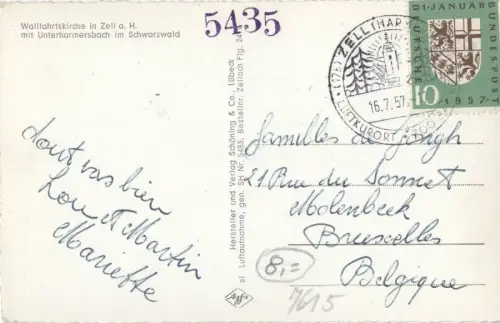 Wallfahrtskirche in Zell a. H.
mit Unterharmersbach im Schwarzwald
5435
(17b) ZELL (HAR
16.7.57
LUFTKURORT
1. JANUAR
DEUTSCHE BUNDESPOST
10
1957
Hersteller und Verlag Schöning & Co., Lübeck
si Luftaufnahme, gen. SH Nr. 5485, Bestellnr. Zellach Flg. 24
tout vas bien
Martin
Mariette
Familles de Jongh
21 Rue du Sonnet
Molenbeek
Bruxelles
Belgique
8,=
7/615
Agfa